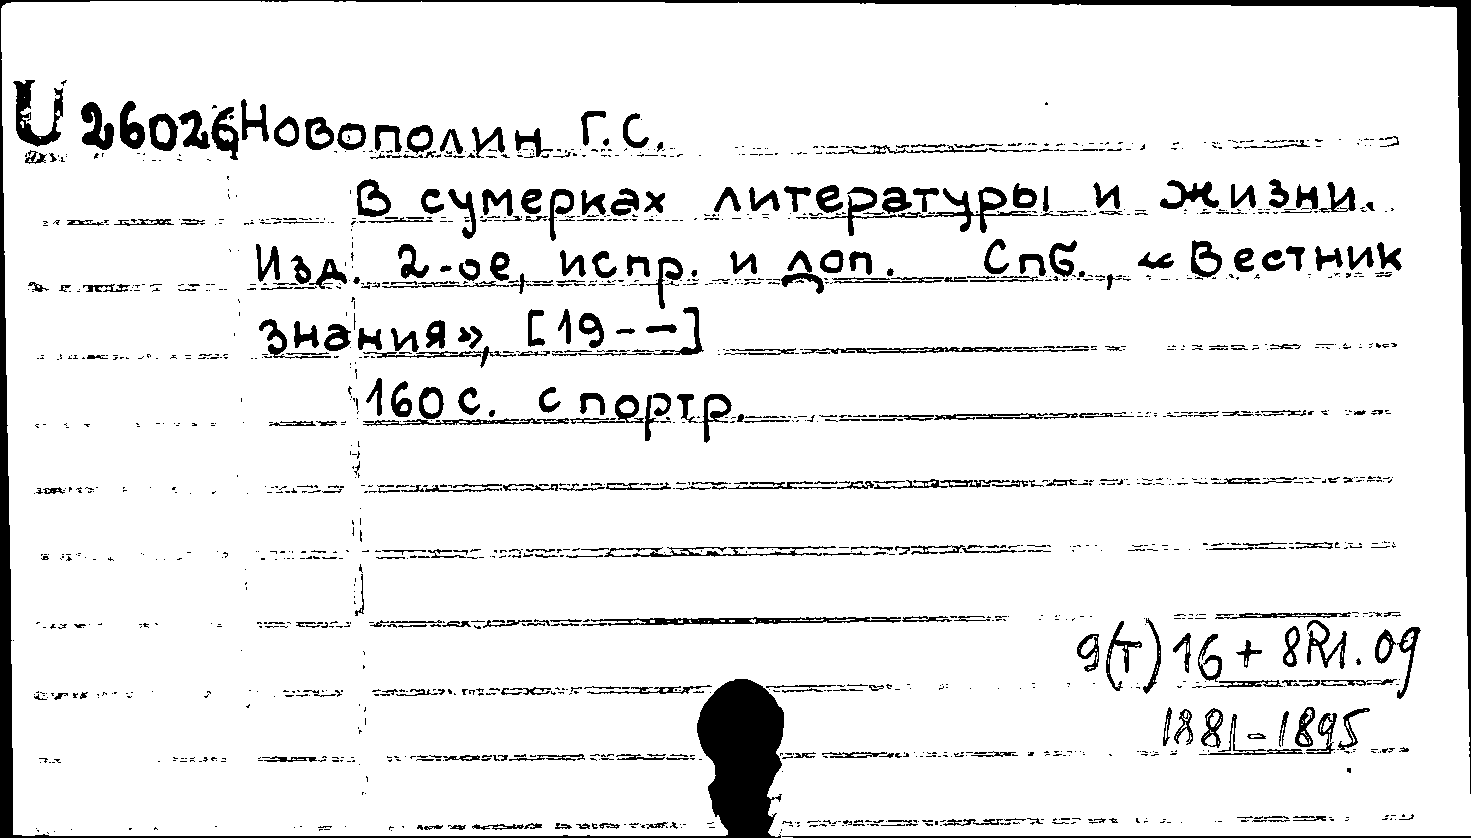 U 26026 Новополин Г.С.
В сумерках литературы и жизни.
Изд. 2-ое, испр. и доп. Спб., «Вестник
знания», [19--]
160 с. с портр.
9(Т)16 + 8Р1.09
1881-1895